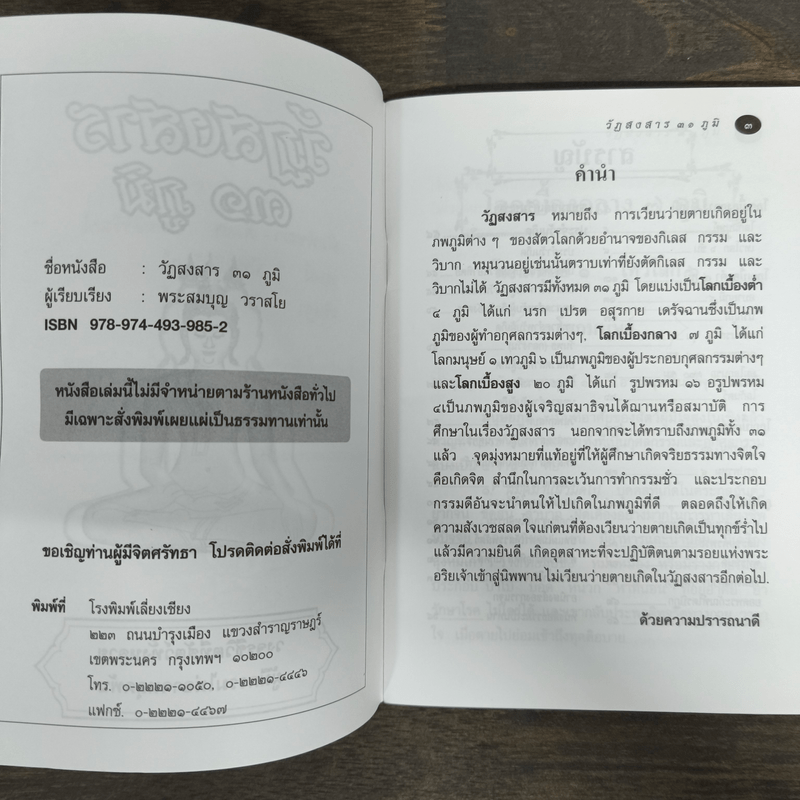 ชื่อหนังสือ : วัฏสงสาร ๓๑ ภูมิ
ผู้เรียบเรียง : พระสมบุญ วราสโย
ISBN 978-974-493-985-2
หนังสือเล่มนี้ไม่มีจำหน่ายตามร้านหนังสือทั่วไป
มีเฉพาะสั่งพิมพ์เผยแผ่เป็นธรรมทานเท่านั้น
ขอเชิญท่านผู้มีจิตศรัทธา โปรดติดต่อสั่งพิมพ์ได้ที่
พิมพ์ที่ โรงพิมพ์เลี่ยงเชียง
๒๒๓ ถนนบำรุงเมือง แขวงสำราญราษฎร์
เขตพระนคร กรุงเทพฯ ๑๐๒๐๐
โทร. ๐-๒๒๒๑-๑๐๕๐, ๐-๒๒๒๑-๔๔๔๖
แฟกซ์. ๐-๒๒๒๑-๔๔๖๗
วัฏสงสาร ๓๑ ภูมิ ๓
คำนำ
วัฏสงสาร หมายถึง การเวียนว่ายตายเกิดอยู่ใน
ภพภูมิต่าง ๆ ของสัตว์โลกด้วยอำนาจของกิเลส กรรม และ
วิบาก หมุนวนอยู่เช่นนั้นตราบเท่าที่ยังตัดกิเลส กรรม และ
วิบากไม่ได้ วัฏสงสารมีทั้งหมด ๓๑ ภูมิ โดยแบ่งเป็นโลกเบื้องต่ำ
๔ ภูมิ ได้แก่ นรก เปรต อสุรกาย เดรัจฉานซึ่งเป็นภพ
ภูมิของผู้ทำอกุศลกรรมต่างๆ, โลกเบื้องกลาง ๗ ภูมิ ได้แก่
โลกมนุษย์ ๑ เทวภูมิ ๖ เป็นภพภูมิของผู้ประกอบกุศลกรรมต่างๆ
และโลกเบื้องสูง ๒๐ ภูมิ ได้แก่ รูปพรหม ๑๖ อรูปพรหม
๔เป็นภพภูมิของผู้เจริญสมาธิจนได้ฌานหรือสมาบัติ การ
ศึกษาในเรื่องวัฏสงสาร นอกจากจะได้ทราบถึงภพภูมิทั้ง ๓๑
แล้ว จุดมุ่งหมายที่แท้อยู่ที่ให้ผู้ศึกษาเกิดจริยธรรมทางจิตใจ
คือเกิดจิต สำนึกในการละเว้นการทำกรรมชั่ว และประกอบ
กรรมดีอันจะนำตนให้ไปเกิดในภพภูมิที่ดี ตลอดถึงให้เกิด
ความสังเวชสลด ใจแก่ตนที่ต้องเวียนว่ายตายเกิดเป็นทุกข์ร่ำไป
แล้วมีความยินดี เกิดอุตสาหะที่จะปฏิบัติตนตามรอยแห่งพระ
อริยเจ้าเข้าสู่นิพพาน ไม่เวียนว่ายตายเกิดในวัฏสงสารอีกต่อไป.
ด้วยความปรารถนาดี